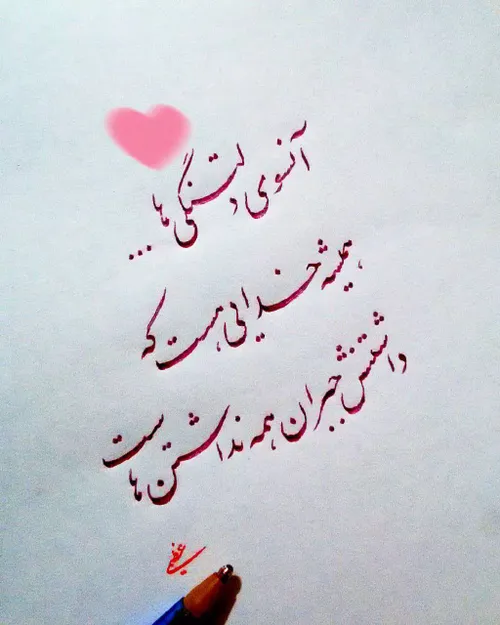 آنسوی دلتنگی ها
...
همیشه خدایی هست که
داشتنش جبران همه نداشتن هاست